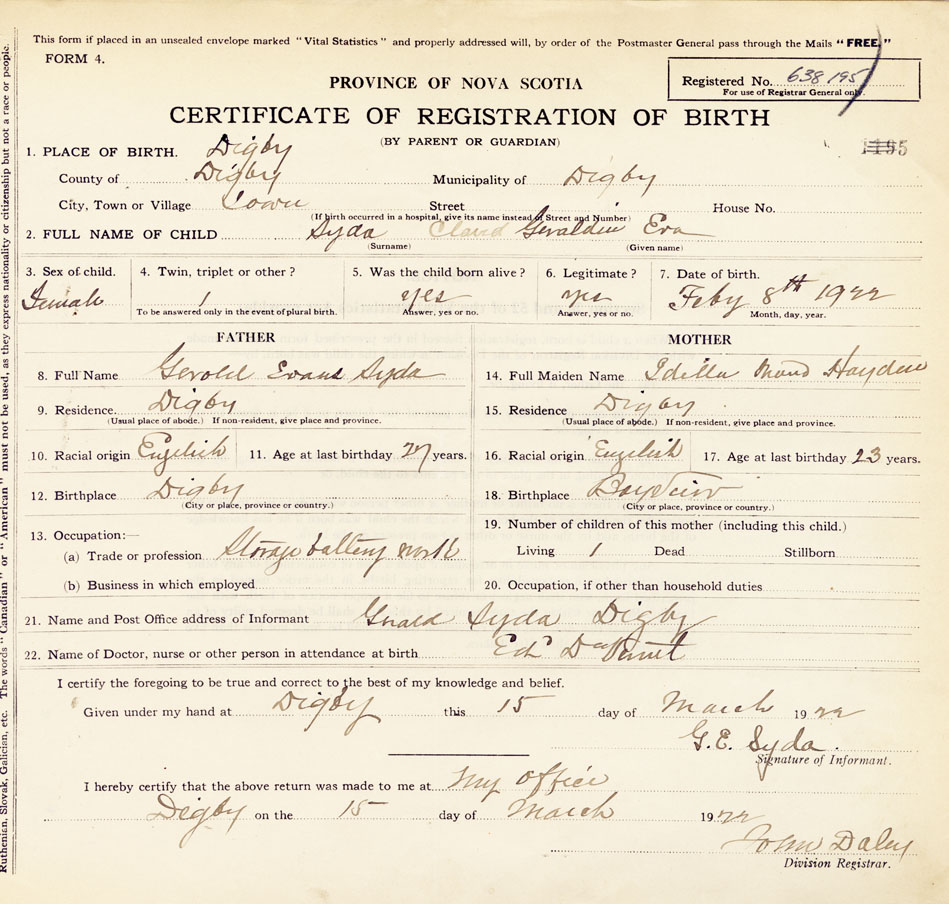 This form if placed in an unsealed envelope marked "Vital Statistics" and properly addressed will, by order of the Postmaster General pass through the Mails "FREE."
FORM 4.
PROVINCE OF NOVA SCOTIA
Registered No. 638195
For use of Registrar General only.
CERTIFICATE OF REGISTRATION OF BIRTH
(BY PARENT OR GUARDIAN)
1. PLACE OF BIRTH. Digby
County of Digby Municipality of Digby
City, Town or Village Town Street House No.
(If birth occurred in a hospital, give its name instead of Street and Number)
2. FULL NAME OF CHILD Syda Geraldin Eva
(Surname) (Given name)
3. Sex of child. 4. Twin, triplet or other? 5. Was the child born alive? 6. Legitimate? 7. Date of birth.
Female 1 yes yes Feby 8th 1922
To be answered only in the event of plural birth. Answer, yes or no. Answer, yes or no. Month, day, year.
FATHER MOTHER
8. Full Name Gerold Evans Syda 14. Full Maiden Name Idella Maud Hayden
9. Residence. Digby 15. Residence Digby
(Usual place of abode.) If non-resident, give place and province. (Usual place of abode.) If non-resident, give place and province.
10. Racial origin English 11. Age at last birthday 27 years. 16. Racial origin English 17. Age at last birthday 23 years.
12. Birthplace Digby 18. Birthplace
(City or place, province or country.) (City or place, province or country.)
13. Occupation:— 19. Number of children of this mother (including this child.)
(a) Trade or profession Storage battery work Living 1 Dead Stillborn
(b) Business in which employed 20. Occupation, if other than household duties
21. Name and Post Office address of Informant Gerald Syda Digby
22. Name of Doctor, nurse or other person in attendance at birth Ed
I certify the foregoing to be true and correct to the best of my knowledge and belief.
Given under my hand at Digby this 15 day of March 1922
G.E. Syda.
Signature of Informant.
I hereby certify that the above return was made to me at My office
Digby on the 15 day of March 1922
John Daley
Division Registrar.
Ruthenian, Slovak, Galician, etc. The words "Canadian" or "American" must not be used, as they express nationality or citizenship but not a race or people.